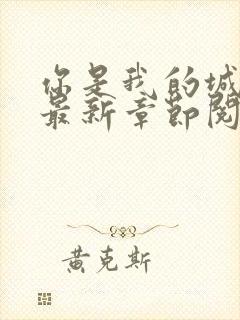 你是我的城
最新章节阅
黄克斯